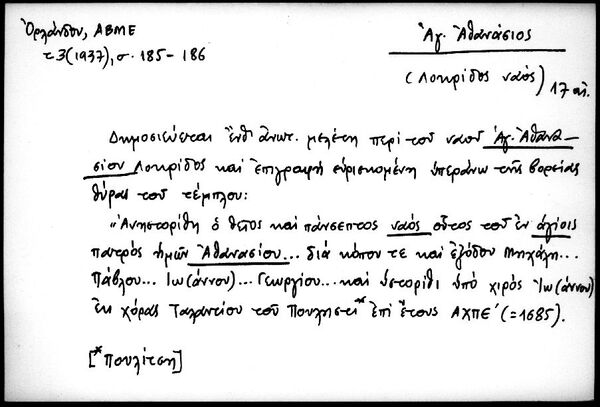 Ὀρλάνδου, ΑΒΜΕ
τ3(1937), σ. 185-186
Ἁγ. Ἀθανάσιος
(Λοκρίδος ναός) 17 αἰ.
Δημοσιεύεται ἔνθ' ἀνωτ. μελέτη περί τοῦ ναοῦ Ἁγ. Ἀθανα-
σίου Λοκρίδος καί ἐπιγραφή εὑρισκομένη ὑπεράνω τῆς βορείας
θύρας τοῦ τέμπλου:
"Ἀνηστορίθη ὁ θεῖος καί πάνσεπτος ναός οὗτος τοῦ ἐν ἁγίοις
πατρός ἡμῶν Ἀθανασίου... διά κόπου τε καί ἐξόδου Μηχάλη...
Πάβλου... Ἰω(άννου)... Γεωργίου... καί ὑστορίθι ὑπό χιρός Ἰω(άννου)
ἐκ χόρας Ταλαντίου τοῦ Πουληστι* ἐπί ἔτους ΑΧΠΕ' (=1685).
[*Πουλίτση]